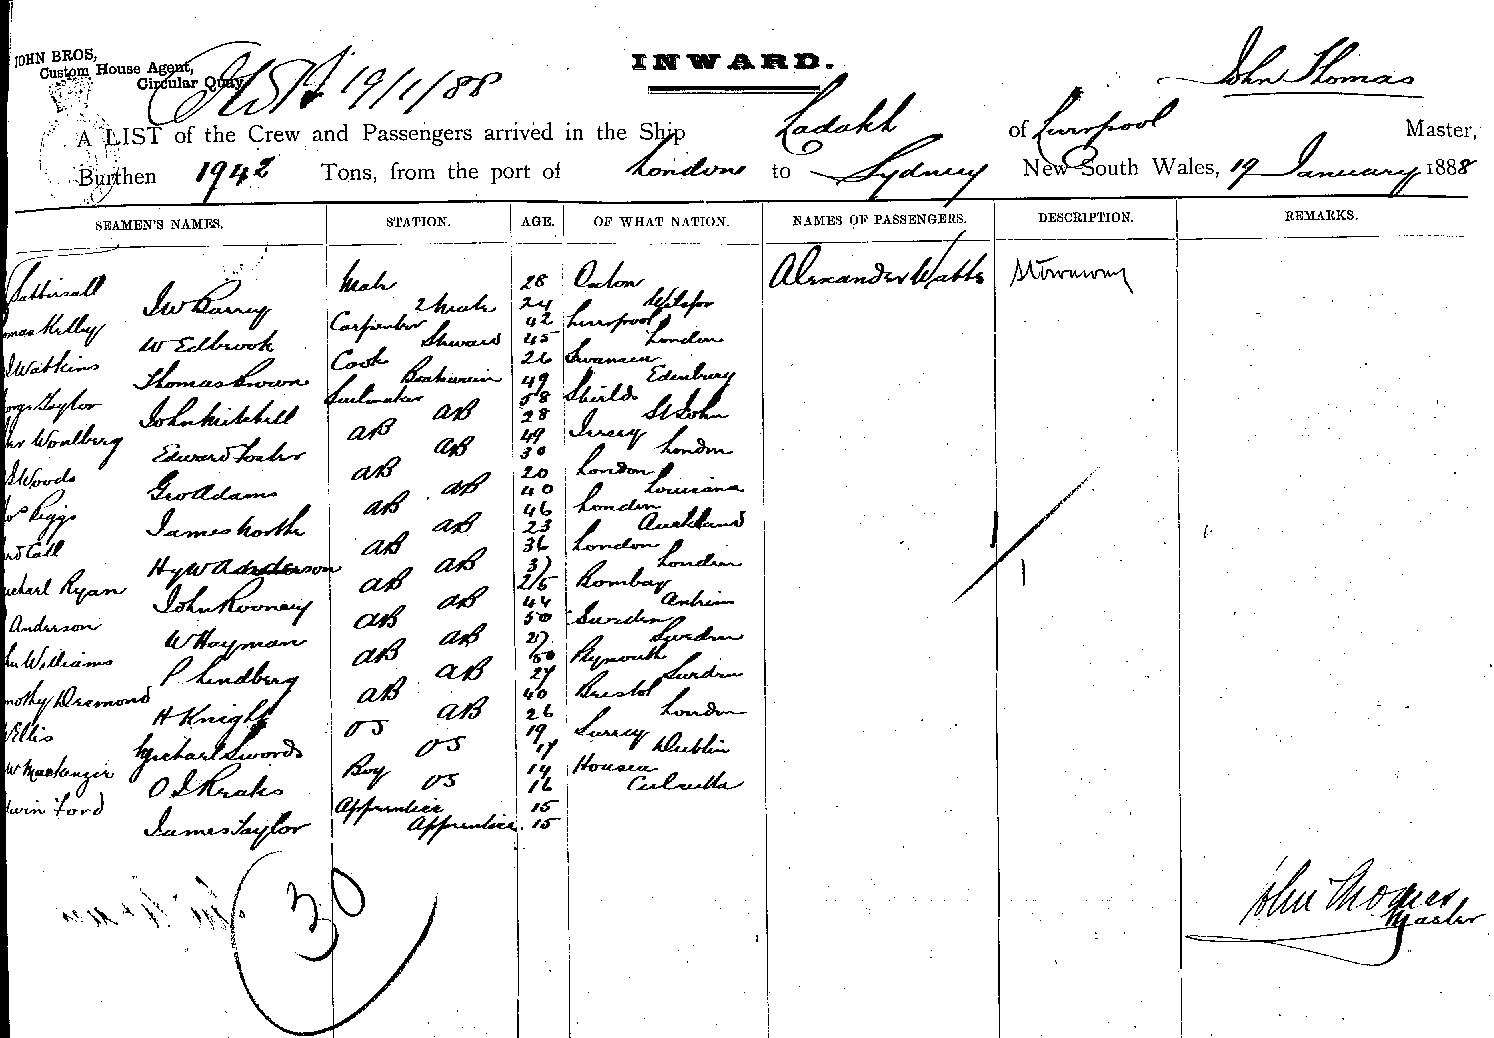 JOHN BROS,
Custom House Agent,
Circular Quay
19/1/88
INWARD.
John Thomas
A LIST of the Crew and Passengers arrived in the Ship Ladakh of Liverpool Master,
Burthen 1942 Tons, from the port of London to Sydney New South Wales, 19 January 1888
SEAMEN'S NAMES. STATION. AGE. OF WHAT NATION. NAMES OF PASSENGERS. DESCRIPTION. REMARKS.
Tattersall Mate 28 Oxton Alexander Watts Stowaway
J W Barrey 2 Mate 24
omas Kelley Carpenter 42 Liverpool
W Edbrook Steward 45 London
Watkins Cook 26 Swansea
Thomas Brown Boatswain 49 Edenburg
orge Taylor Sailmaker 58 Shields
John Mitchell AB 28 St John
Woulberg AB 49 Jersey
Edward Foster AB 30 London
Woods AB 20 London
Geo Adams AB 40 Louisiana
Riggs AB 46 London
James North AB 23 Auckland
Call AB 36 London
Hy W Anderson AB 37 London
ichael Ryan AB 25 Bombay
John Rooney AB 44 Antrim
Anderson AB 50 Sweden
W Hayman AB 27 Sweden
Williams AB 50 Plymouth
P Lindberg AB 27 Sweden
mothy Desmond AB 40 Bristol
H Knight AB 26 London
Ellis OS 19 Surrey
Michael Swords OS 17 Dublin
W Mackenzie Boy 14
O S OS 16 Calcutta
dwin Ford Apprentice 15
James Taylor Apprentice 15
30
John Thomas
Master